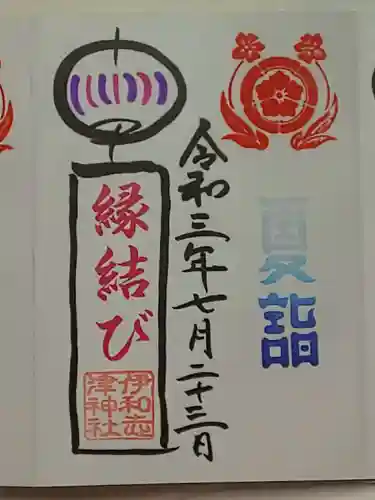 夏詣
令和三年七月二十三日
縁結び
伊和志
津神社